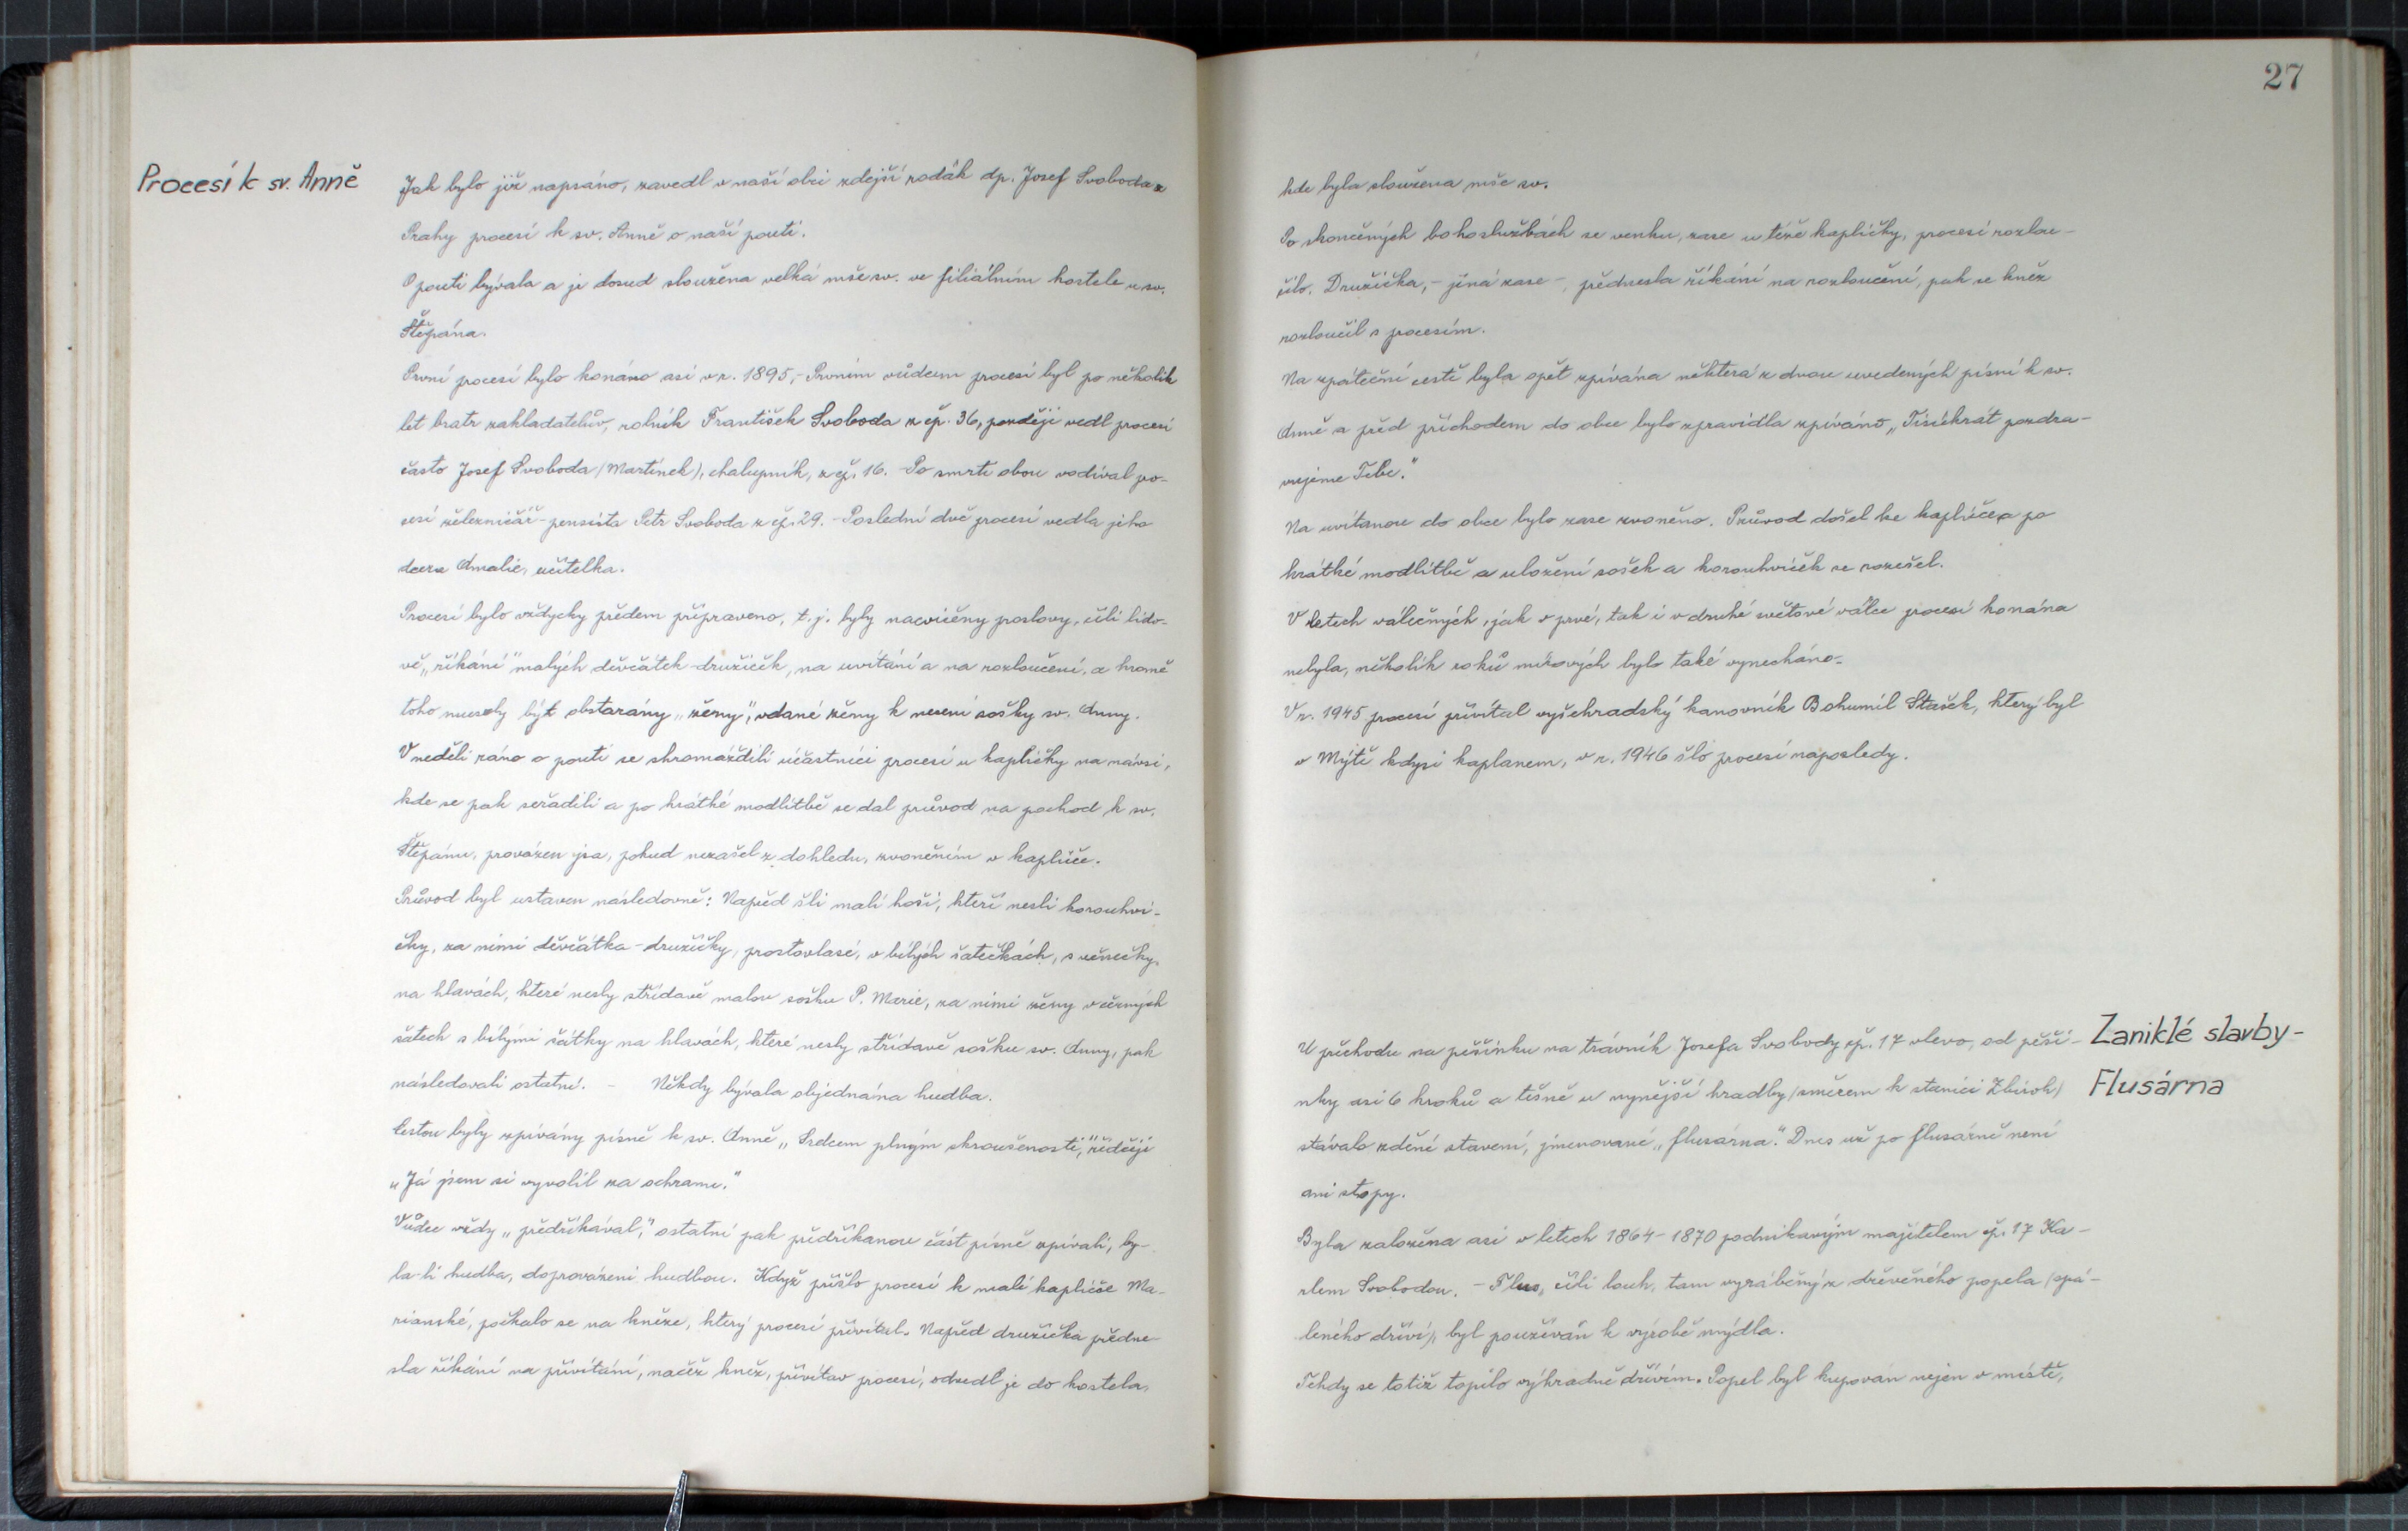 Procesí k sv. Anně
Jak bylo již napsáno, zavedl v naší obci zdejší rodák dp. Josef Svoboda z
Prahy procesí k sv. Anně o naší pouti.
O pouti bývala a je dosud sloužena velká mše sv. ve filiálním kostele u sv.
Štěpána.
První procesí bylo konáno asi v r. 1895,- Prvním vůdcem procesí byl po několik
let bratr zakladatelův, rolník František Svoboda z čp. 36, později vedl procesí
často Josef Svoboda (Martínek), chalupník, z čp. 16. - Po smrti obou vodíval po-
cesí železničář-pensista Petr Svoboda z čp. 29. - Poslední dvě procesí vedla jeho
dcera Amalie, učitelka.
Procesí bylo vždycky předem připraveno, t.j. byly nacvičeny proslovy, čili lido-
vě „říkání" malých děvčátek-družiček, na uvítání a na rozloučení, a kromě
toho musely být obstarány „ženy", vdané ženy k nesení sošky sv. Anny.
V neděli ráno o pouti se shromáždili účastníci procesí u kapličky na návsi,
kde se pak seřadili a po krátké modlitbě se dal průvod na pochod k sv.
Štěpánu, provázen jsa, pokud nezašel z dohledu, zvoněním v kapličce.
Průvod byl ustaven následovně: Napřed šli malí hoši, kteří nesli korouhvi-
čky, za nimi děvčátka-družičky, prostovlasé, v bílých šatečkách, s věnečky
na hlavách, které nesly střídavě malou sošku P. Marie, za nimi ženy v černých
šatech s bílými šátky na hlavách, které nesly střídavě sošku sv. Anny, pak
následovali ostatní. - Někdy bývala objednána hudba.
Cestou byly zpívány písně k sv. Anně „Srdcem plným skroušenosti," řidčeji
„Já jsem si vyvolil za ochranu."
Vůdce vždy „předříkával," ostatní pak předříkanou část písně zpívali, by-
la-li hudba, doprovázeni hudbou. Když přišlo procesí k malé kapličce Ma-
rianské, počkalo se na kněze, který procesí přivítal. Napřed družička předne-
sla říkání na přivítání, načež kněz, přivítav procesí, odvedl je do kostela,
27
kde byla sloužena mše sv.
Po skončených bohoslužbách se venku, zase u téže kapličky, procesí rozlou-
čilo. Družička, - jiná zase -, přednesla říkání na rozloučení, pak se kněz
rozloučil s procesím.
Na zpáteční cestě byla opět zpívána některá z dvou uvedených písní k sv.
Anně a před příchodem do obce bylo zpravidla zpíváno „Tisíckrát pozdra-
vujeme Tebe."
Na uvítanou do obce bylo zase zvoněno. Průvod došel ke kapličce a po
krátké modlitbě a uložení sošek a korouhviček se rozešel.
V letech válečných, jak v prvé, tak i v druhé světové válce procesí konána
nebyla, několik roků mírových bylo také vynecháno.-
V r. 1945 procesí přivítal vyšehradský kanovník Bohumil Stašek, který byl
v Mýtě kdysi kaplanem, v r. 1946 šlo procesí naposledy.
Zaniklé stavby -
Flusárna
U příchodu na pěšinku na trávník Josefa Svobody čp. 17 vlevo, od pěši-
nky asi 6 kroků a těsně u nynější hradby (směrem k stanici Zbiroh)
stávalo zděné stavení, jmenované „flusárna". Dnes už po flusárně není
ani stopy.
Byla založena asi v letech 1864-1870 podnikavým majitelem čp. 17 Ka-
rlem Svobodou. - Flus, čili louh, tam vyráběný z dřevěného popela (spá-
leného dříví), byl používán k výrobě mýdla.
Tehdy se totiž topilo výhradně dřívím. Popel byl kupován nejen v místě,